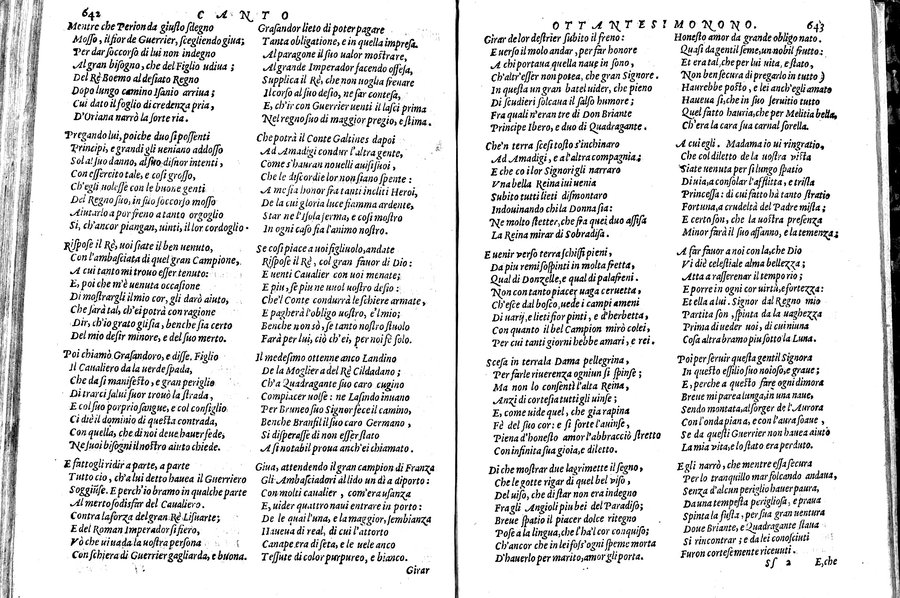 642 CANTO
Mentre che Perion da giusto sdegno
Mosso, il fior de Guerrier, scegliendo giua;
Per dar soccorso di lui non indegno
Al gran bisogno, che del Figlio udiua;
Del Rè Boemo al desiato Regno
Dopo lungo camino Isanio arriua;
Cui dato il foglio di credenza pria,
D'Oriana narrò la sorte ria.
Pregando lui, poiche duo si possenti
Principi, e grandi gli ueniano addosso
Sol al suo danno, al suo disnor intenti,
Con essercito tale, e così grosso,
Ch'egli uolesse con le buone genti
Del Regno suo, in suo soccorso mosso
Aiutarlo a por freno a tanto orgoglio
Si, ch'ancor piangan, uinti, il lor cordoglio.
Rispose il Rè, uoi siate il ben uenuto,
Con l'ambasciata di quel gran Campione,
A cui tanto mi trouo esser tenuto:
E, poi che m'è uenuta occasione
Di mostrargli il mio cor, gli darò aiuto,
Che sarà tal, ch'ei potrà con ragione
Dir, ch'io grato gli sia, benche sia certo
Del mio desir minore, e del suo merto.
Poi chiamò Grasandoro, e disse. Figlio
Il Caualiero da la uerde spada,
Che da si manifesto, e gran periglio
Di trarci salui fuor trouò la strada,
E col suo porprio sangue, e col consiglio
Ci diè il dominio di questa contrada,
Con quella, che di noi deue hauer fede,
Ne suoi bisogni il nostro aiuto chiede.
E fattogli ridir a parte, a parte
Tutto cio, ch'a lui detto hauea il Guerriero
Soggiũse. E perch'io bramo in qualche parte
Al merto sodisfar del Caualiero.
Contra la forza del gran Rè Lisuarte;
E del Roman Imperador si fiero,
Vò che ui uada la uostra persona
Con schiera di Guerrier gagliarda, e buona.
Grasandor lieto di poter pagare
Tanta obligatione, e in quella impresa.
Al paragone il suo ualor mostrare,
Al grande Imperador facendo offesa,
Supplica il Rè, che non uoglia frenare
Il corso al suo desio, ne far contesa,
E, ch'ir con Guerrier uenti il lasci prima
Nel regno suo di maggior pregio, e stima.
Che potrà il Conte Galtines dapoi
Ad Amadigi condur l'altra gente,
Come s'hauran nouelli auisi suoi,
Che le discordie lor non siano spente:
A me sia honor fra tanti incliti Heroi,
De la cui gloria luce fiamma ardente,
Star ne l'Isola ferma, e così mostro
In ogni caso fia l'animo nostro.
Se così piace a uoi figliuolo, andate
Rispose il Rè, col gran fauor di Dio:
E uenti Caualier con uoi menate;
E piu, se piu ne uuol uostro desio:
Che'l Conte condurrà le schiere armate,
E pagherà l'obligo uostro, e'l mio;
Benche non sò, se tanto nostro stuolo
Farà per lui, ciò ch'ei, per noi fè solo.
Il medesimo ottenne anco Landino
De la Moglier del Rè Cildadano;
Ch'a Quadragante suo caro cugino
Compiacer uolse: ne Lasindo inuano
Per Bruneo suo Signor fece il camino,
Benche Branfil il suo caro Germano,
Si disperasse di non esser stato
A si notabil proua anch'ei chiamato.
Giua, attendendo il gran campion di Franza
Gli Ambasciadori al lido un dì a diporto:
Con molti caualier, com'era usanza
E, uider quattro naui entrare in porto:
De le qual'una, e la maggior, sembianza
Haueua di real, di cui l'attorto
Canape era di seta, e le uele anco
Tessute di color purpureo, e bianco.
Girar
OTTANTESIMONONO. 643
Girar de lor destrier subito il freno:
E uerso il molo andar, per far honore
A chi portaua quella naue in sono,
Ch'altr'esser non potea, che gran Signore.
In questa un gran batel uider, che pieno
Di scudieri solcaua il salso humore;
Fra quali n'eran tre di Don Briante
Principe Ibero, e duo di Quadragante.
Che'n terra scesi tosto s'inchinaro
Ad Amadigi, e a l'altra compagnia;
E che co i lor Signori gli narraro
Vna bella Reina iui uenia
Subito tutti lieti dismontaro
Indouinando chi la Donna sia:
Ne molto stetter, che fra quei duo assisa
La Reina mirar di Sobradisa.
E uenir uerso terra schifi pieni,
Da piu remi sospinti in molta fretta,
Qual di Donzelle, e qual di palafreni.
Non con tanto piacer uaga ceruetta,
Ch'esce dal bosco, uede i campi ameni
Di uarij, e lieti fior pinti, e d'herbetta,
Con quanto il bel Campion mirò colei,
Per cui tanti giorni hebbe amari, e rei.
Scesa in terra la Dama pellegrina,
Per farle riuerenza ogniun si spinse;
Ma non lo consentì l'alta Reina,
Anzi di cortesia tutti gli uinse;
E, come uide quel, che gia rapina
Fè del suo cor: e sì forte l'auinse,
Piena d'honesto amor l'abbracciò stretto
Con infinita sua gioia, e diletto.
Di che mostrar due lagrimette il segno,
Che le gotte rigar di quel bel uiso,
Del uiso, che di star non era indegno
Fra gli Angioli piu bei del Paradiso;
Breue spatio il piacer dolce ritegno
Pose a la lingua, che l'ha'l cor conquiso;
Ch'ancor che in lei foss'ogni speme morta
D'hauerlo per marito, amor gli porta.
Honesto amor da grande obligo nato.
Quasi da gentil seme, un nobil frutto:
Et era tal, che per lui uita, e stato,
Non ben secura di pregarlo in tutto)
Haurebbe posto, e lei anch'egli amato
Haueua sì, che in suo seruitio tutto
Quel fatto hauria, che per Melitia bella,
Ch'era la cara sua carnal sorella.
A cui egli. Madama io ui ringratio,
Che col diletto de la uostra uista
Siate uenuta per si lungo spatio
Di uia, a consolar l'afflitta, e trista
Princessa: di cui fatto hà tanto stratio
Fortuna, a crudeltà del Padre mista;
E certo son, che la uostra presenza
Minor farà il suo affanno, e la temenza;
A far fauor a noi con la, che Dio
Vi diè celestial alma bellezza;
Atta a rasserenar il tempo rio;
E porre in ogni cor uirtù, e fortezza:
Et ella a lui. Signor dal Regno mio
Partita son, spinta da la uaghezza
Prima di ueder uoi, di cui niuna
Cosa altra bramo piu sotto la Luna.
Poi per seruir questa gentil Signora
In questo essilio suo noioso, e graue;
E, perche a questo fare ogni dimora
Breue mi parea lunga, in una naue,
Sendo montata, al sorger de l'Aurora
Con l'onda piana, e con l'aura soaue,
Se da questi Guerrier non hauea aiuto
La mia vita, e lo stato era perduto.
E gli narrò, che mentre essa secura
Per lo tranquillo mar solcando andaua,
Senza d'alcun periglio hauer paura,
Da una tempesta perigliosa, e praua
Spinta la fusta, per sua gran uentura
Doue Briante, e Quadragante staua
Si rincontrar; e da lei conosciuti
Furon cortesemente riceuuti.
SS 2 E, che